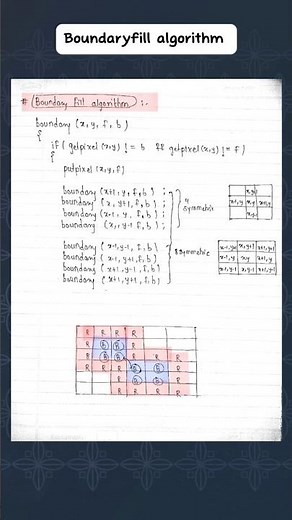 Boundaryfill algorithm
# Boundary fill algorithm :-
boundary (x, y, f, b)
{
if ( getpixel (x,y) ! = b && getpixel (x,y) ! = f )
{
putpixel (x, y, f)
boundary (x+1, y, f, b) ;
boundary (x, y+1, f, b) ;
boundary (x-1, y, f, b) ;
boundary (x, y-1, f, b) ;
4 symmetric
x-1, y x, y x+1, y
x, y-1
boundary (x-1, y-1, f, b)
boundary (x-1, y+1, f, b)
boundary (x+1, y-1, f, b)
boundary (x+1, y+1, f, b)
8 symmetric
x-1, y+1 x, y+1 x+1, y+1
x-1, y x, y x+1, y
x-1, y-1 x, y-1 x+1, y-1
R R R R
R B B R
R B B R R R
R R R B B R
R B B R
R R R R